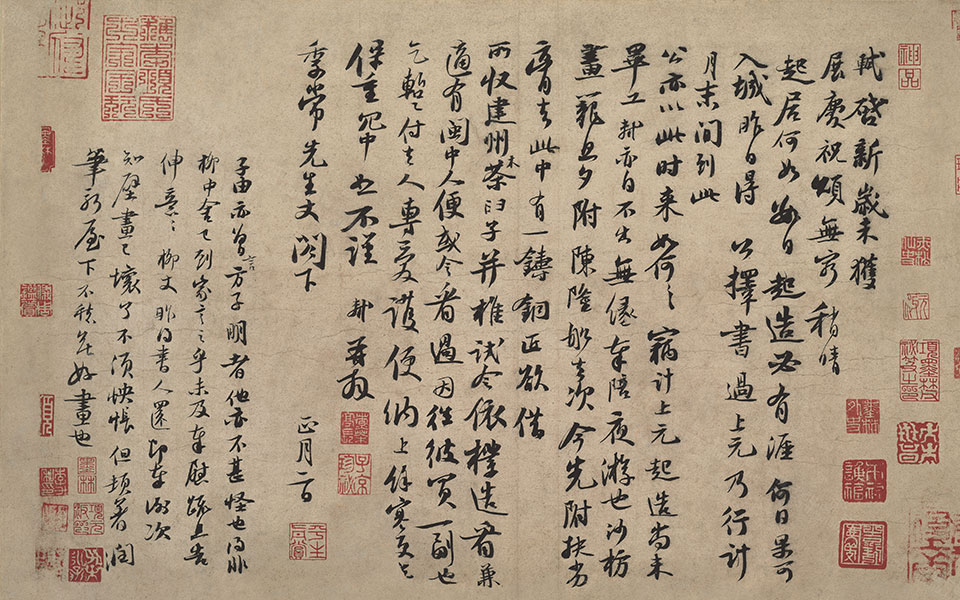 軾啓新歲未獲
展慶祝頌無窮稍晴
起居何如數日起造必有涯何日果可
入城昨日得公擇書過上元乃行計
月末間到此
公亦以此時來如何如何竊計上元起造尚未
畢工軾亦自不出無緣奉陪夜遊也沙枋
畫籠旦夕附陳隆船去次今先附扶劣
膏去此中有一鑄銅匠欲借
所收建州木茶臼子并椎試令依樣造看兼
適有閩中人便或令看過因往彼買一副也
乞暫付去人專愛護便納上餘寒更乞
保重冗中恕不謹軾再拜
季常先生丈閣下
正月二日
子由亦曾言方子明者他亦不甚怪也得非
柳中舍已到家言之乎未及奉慰疏且告
伸意伸意柳丈昨得書人還即奉謝次
知壁畫已壞了不須怏悵但頓著潤
筆新屋下不愁無好畫也
神品
墨林